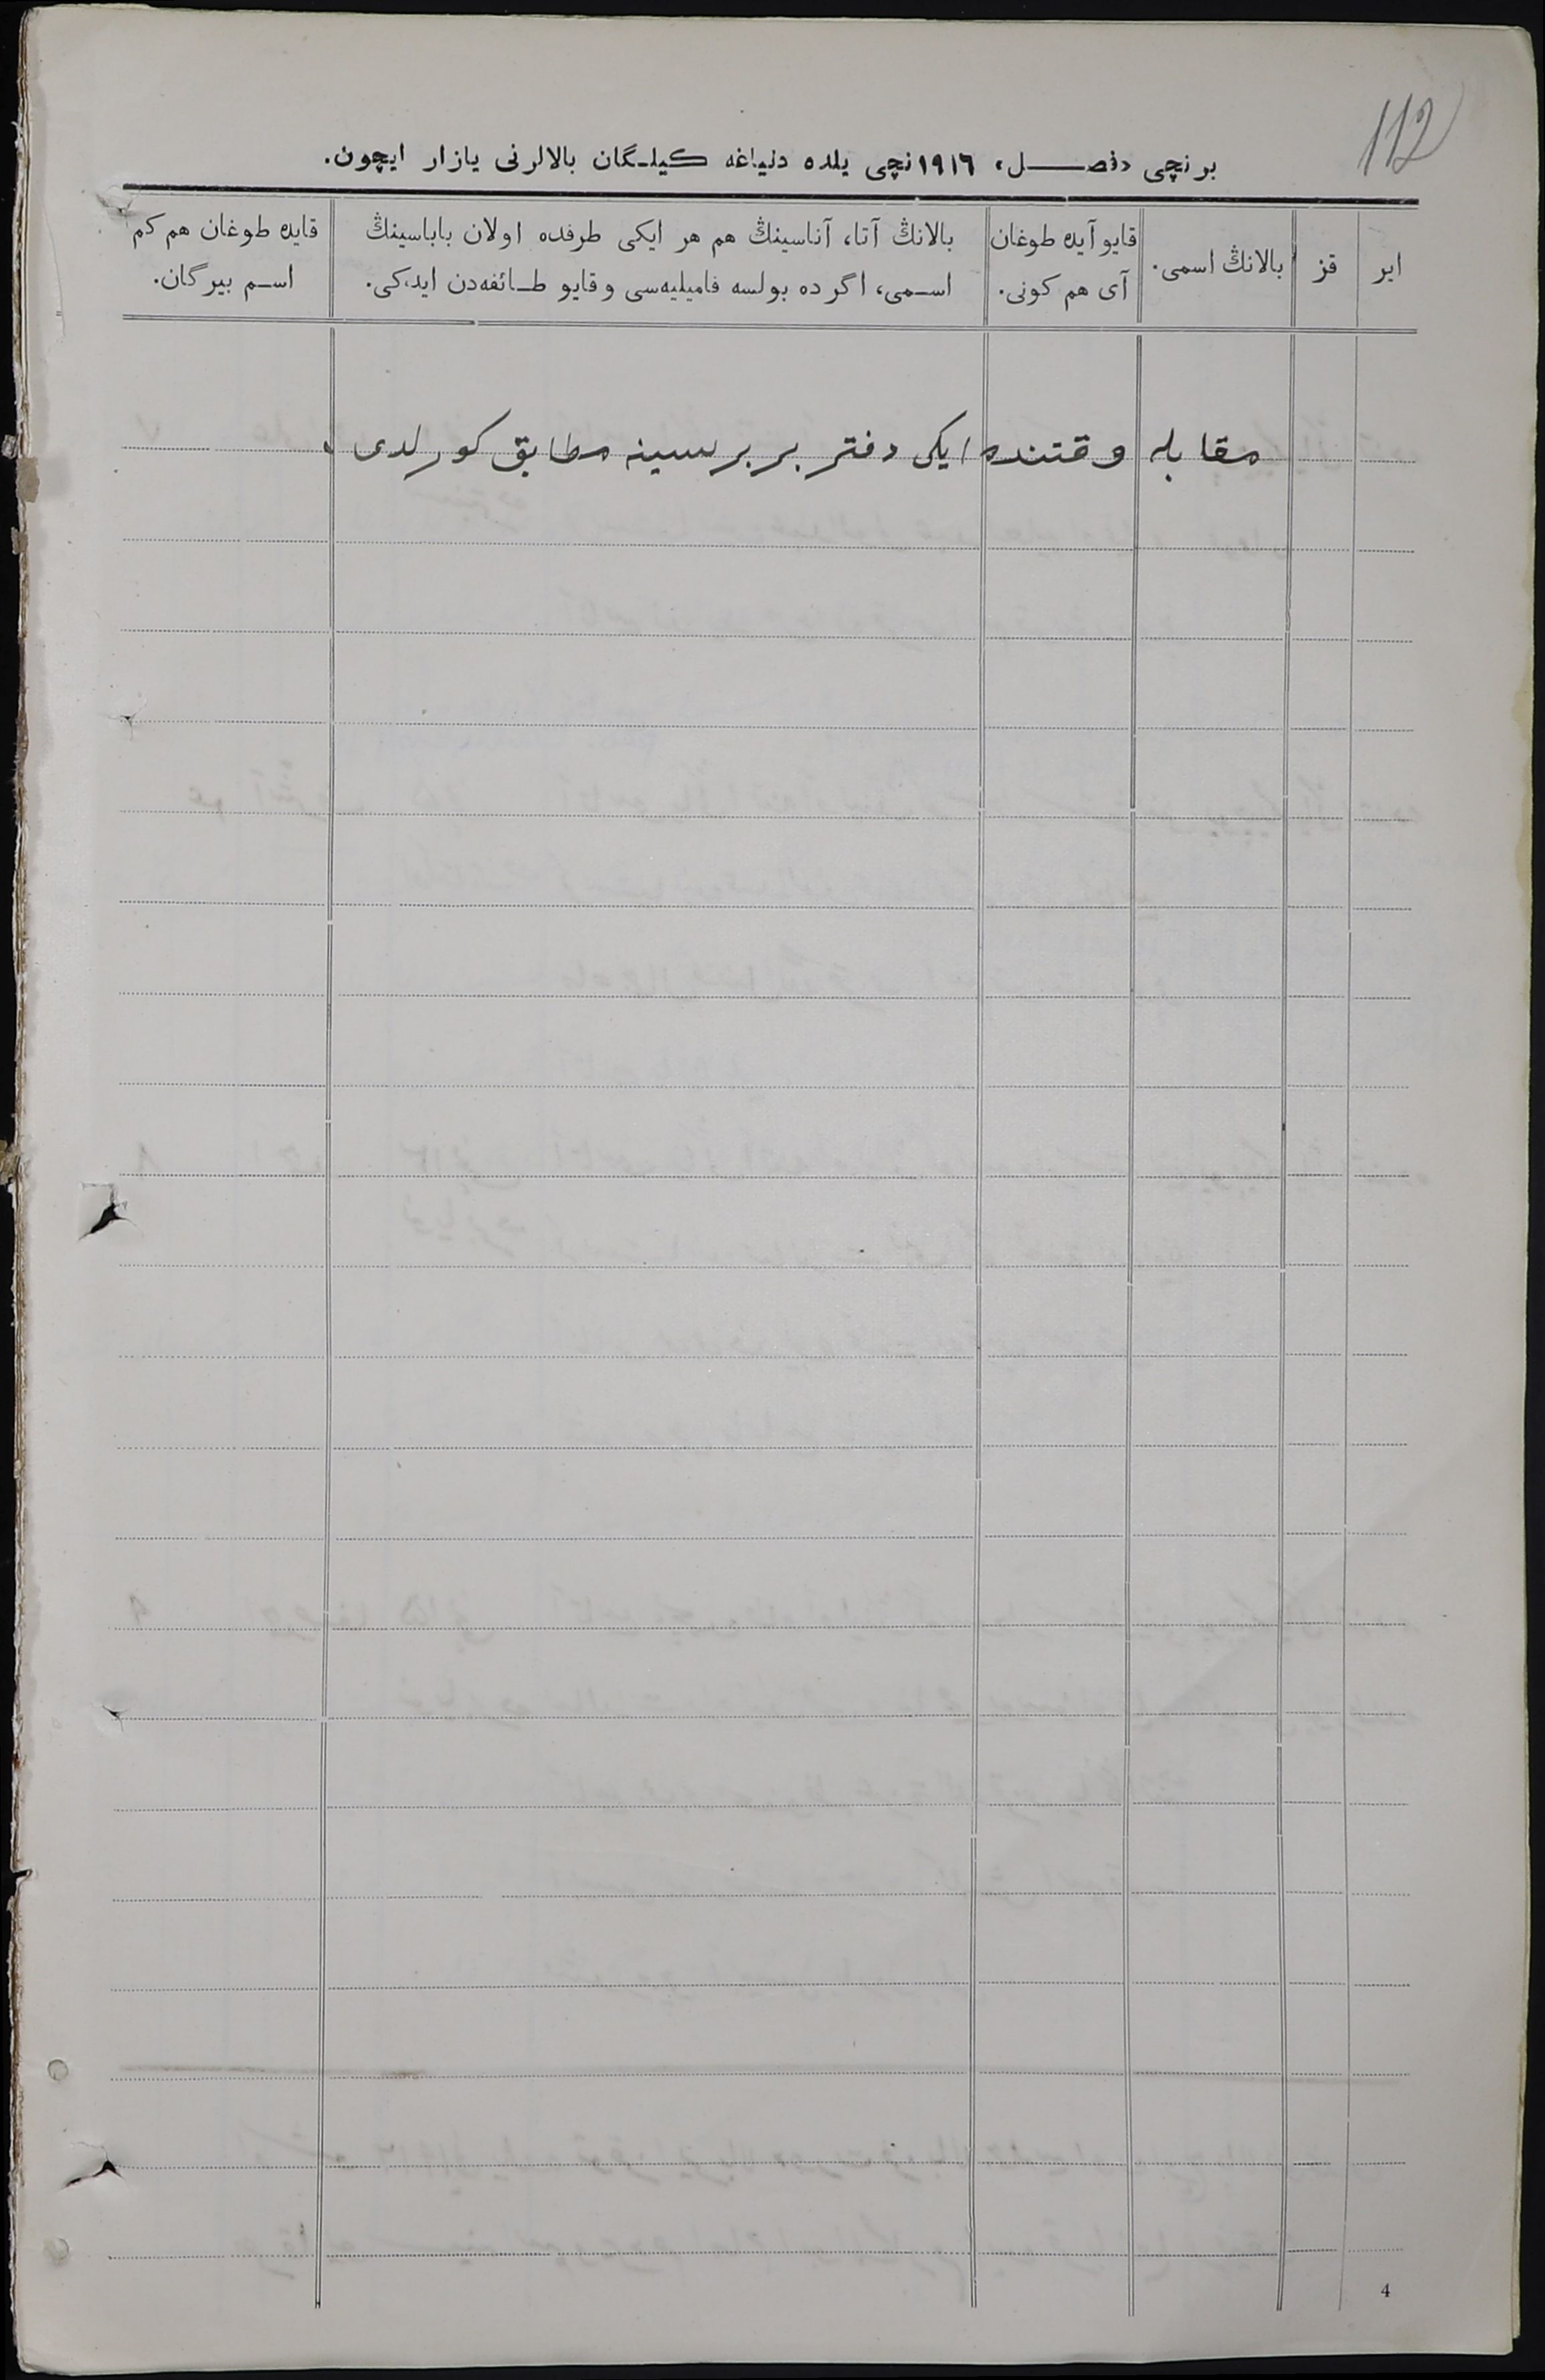 112
برنچی «فصــــل» ١٩١٦نچی یلده دنیاغه کیلـگان بالالرنی یازار ایچون.
ایر
قز
بالانڭ اسمی.
قایو آیده طوغان
آی هم کونی.
بالانڭ آتا، آناسینڭ هم هر ایکی طرفده اولان باباسینڭ
اسـمی، اگر ده بولسه فامیلیه‌سی و قایو طـائفه‌دن ایدکی.
قایده طوغان هم کم
اسـم بیرگان.
مقابله وقتنده ایکی دفتر بر برسینه مطابق کورلدی.
4